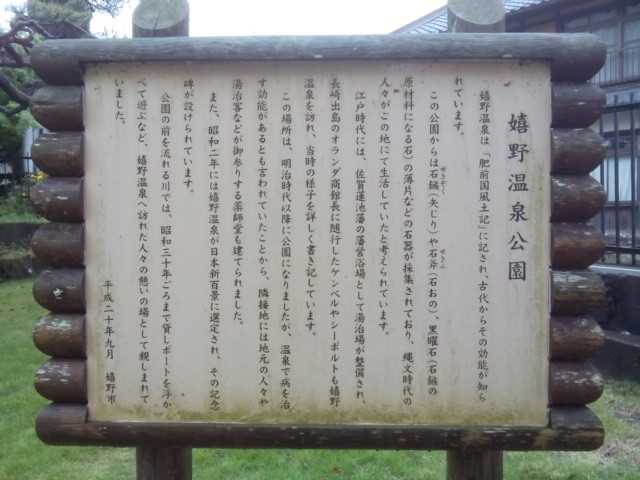 嬉野温泉公園
嬉野温泉は、「肥前国風土記」に記され、古代からその効能が知ら
れています。
この公園からは石鏃（矢じり）や石斧（石おの）、黒曜石（石鏃の
原材料になる石）の薄片などの石器が採集されており、縄文時代の
人々がこの地にて生活していたと考えられています。
江戸時代には、佐賀蓮池藩の藩営浴場として湯治場が整備され、
長崎出島のオランダ商館長に随行したケンペルやシーボルトも嬉野
温泉を訪れ、当時の様子を詳しく書き記しています。
この場所は、明治時代以降に公園になりましたが、温泉で病を治
す効能があるとも言われていたことから、隣接地には地元の人々や
湯治客などが御参りする薬師堂も建てられました。
また、昭和二年には嬉野温泉が日本新百景に選定され、その記念
碑が設けられています。
公園の前を流れる川では、昭和三十年ごろまで貸しボートを浮か
べて遊ぶなど、嬉野温泉へ訪れた人々の憩いの場として親しまれて
いました。
平成二十年九月　嬉野市